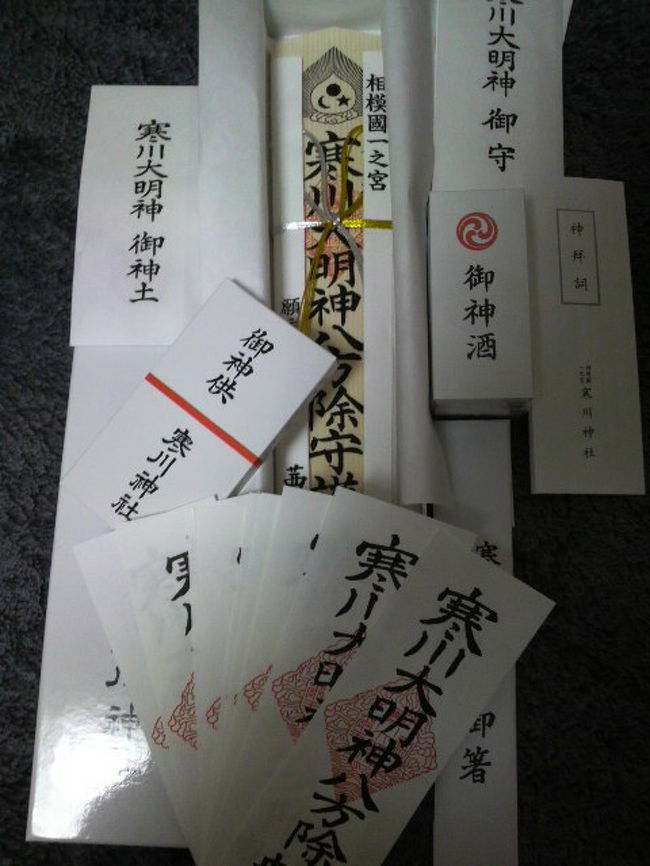 寒川大明神 御神土
相模國一之宮
寒川大明神八方除守護
願
茜
川大明神 御守
御神酒
神拝詞
寒川神社
御神供
寒川神社
神
御箸
寒川大明
寒川大明神八方除